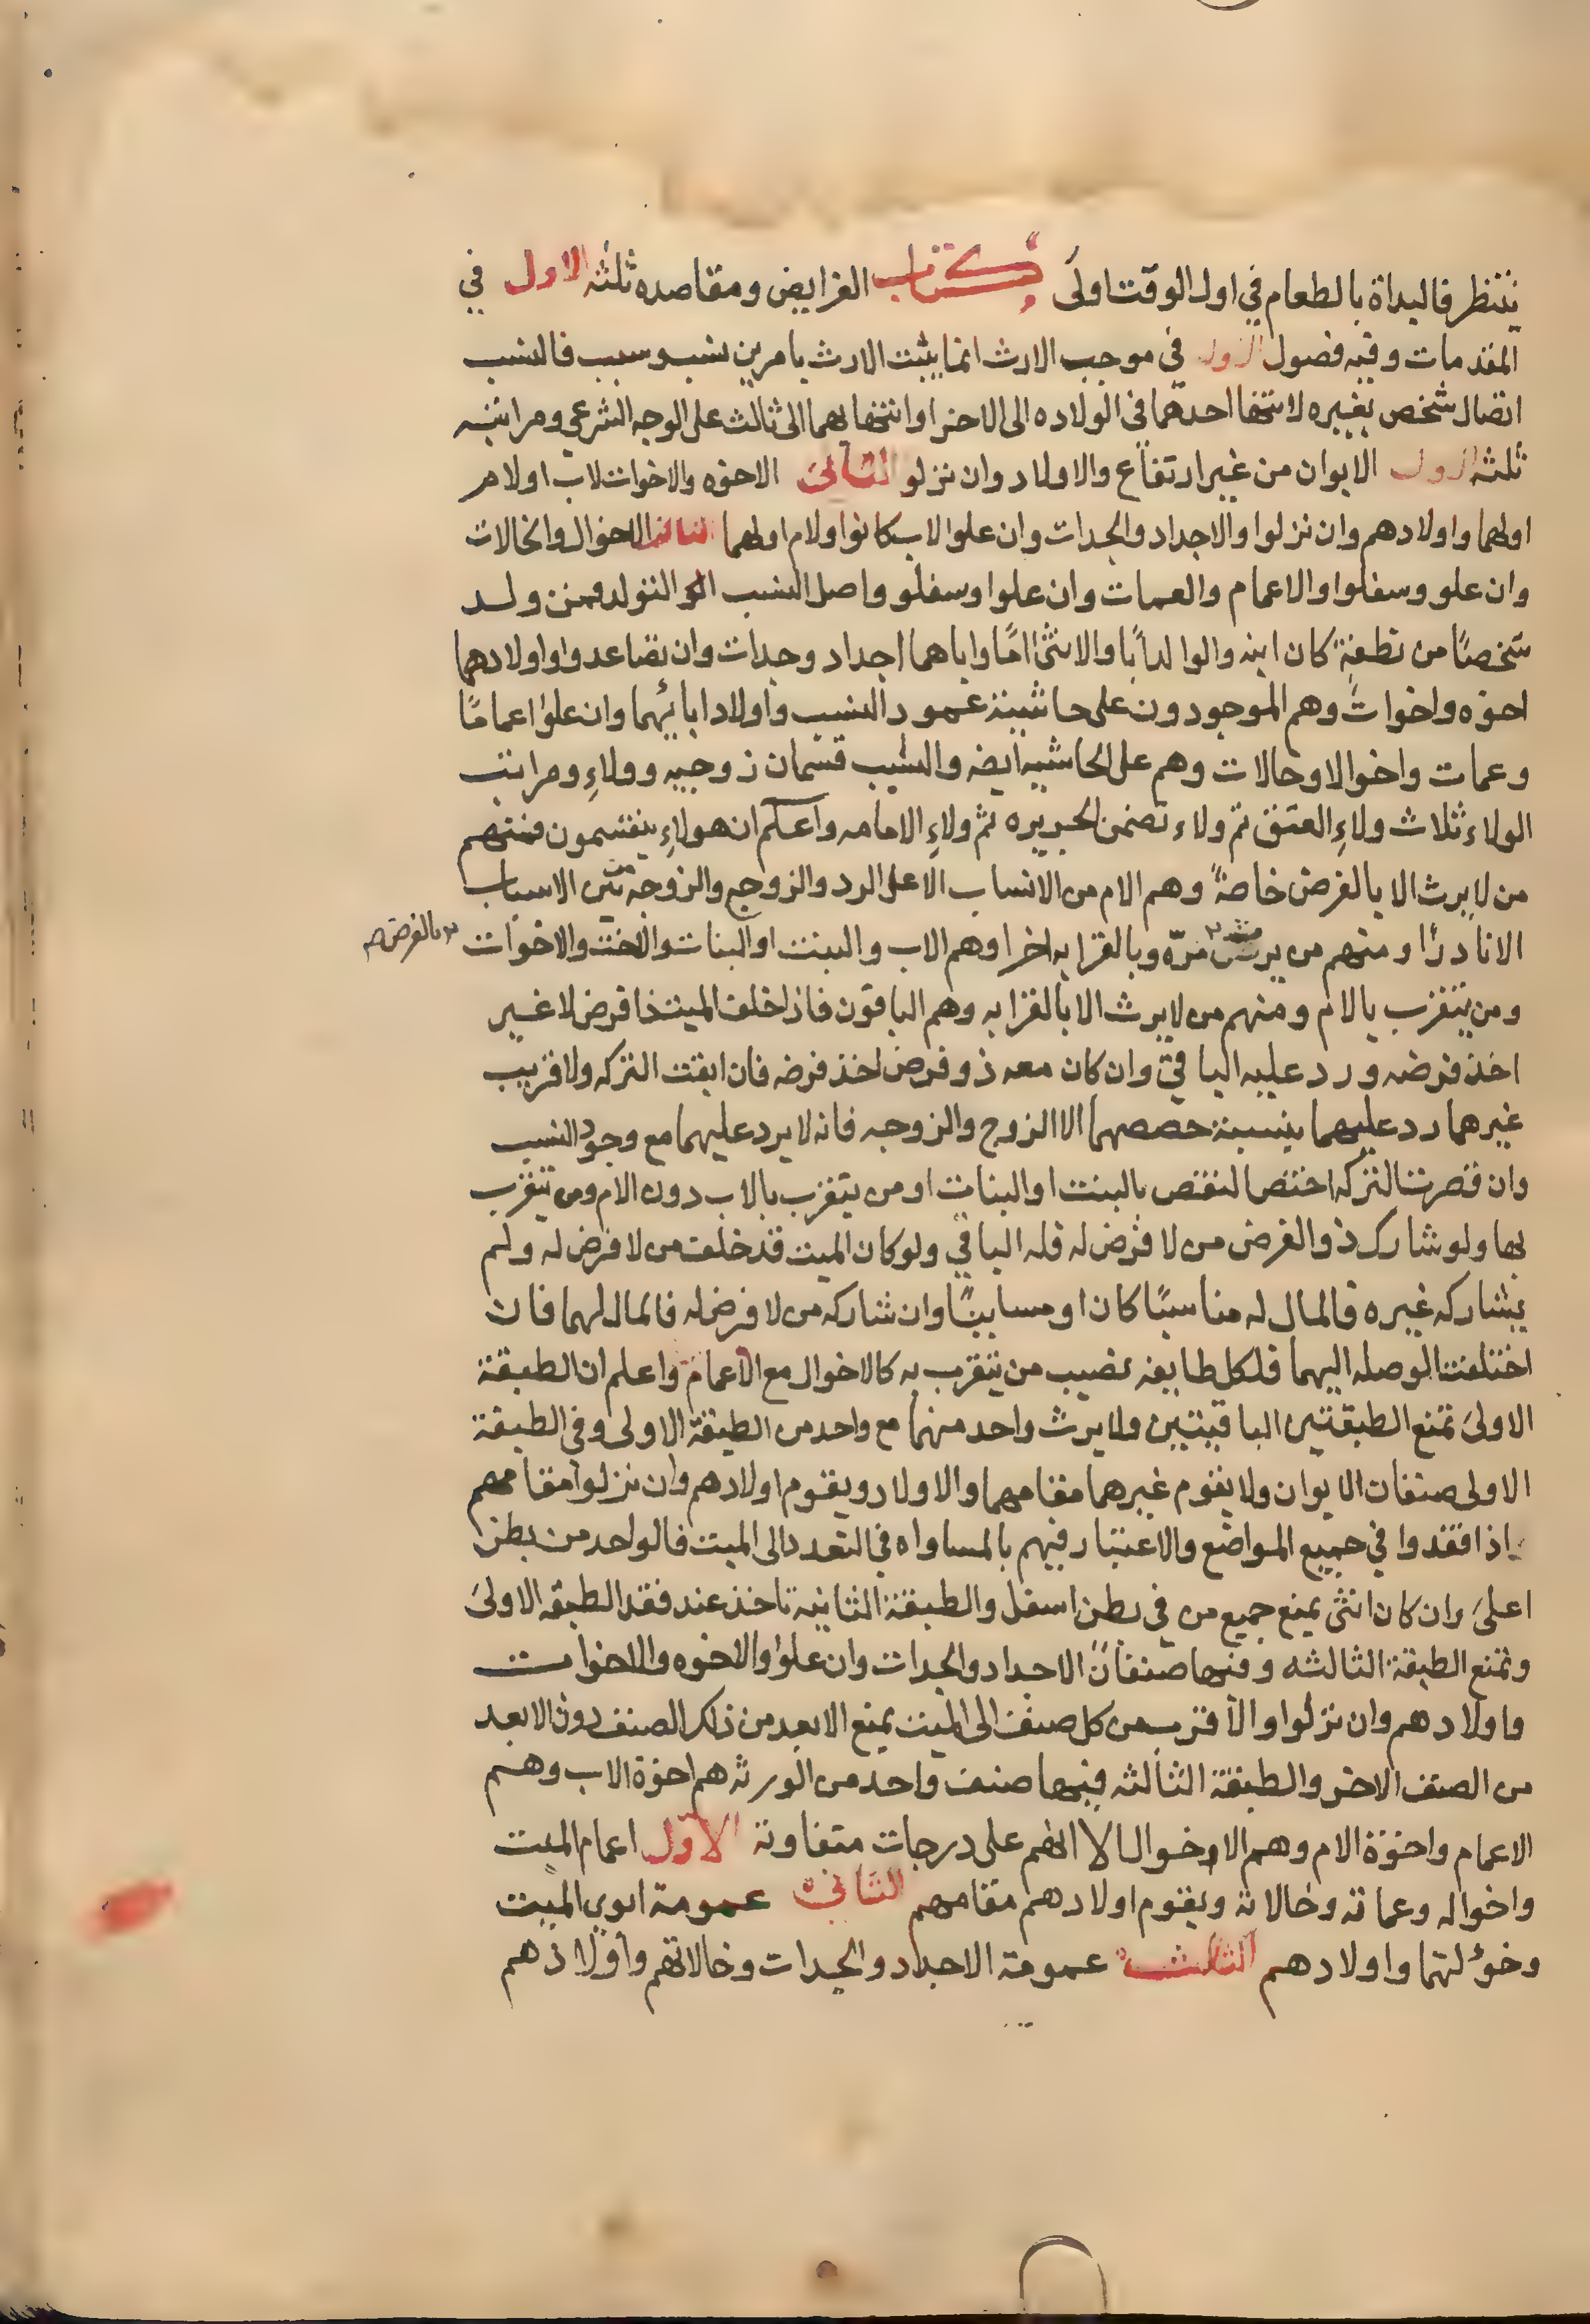 ينتظر فالبداة بالطعام في اول الوقت اولى كتاب الفرايض ومقاصده ثلثه الاول في
المقدمات وفيه فصول الاول في موجب الارث انما يثبت الارث بامرين نسب وسبب فالنسب
اتصال شخص بغيره لانتها احدهما في الولاده الى الاخر او انتهايهما الى ثالث على الوجه الشرعي ومراتبه
ثلثه الاول الابوان من غير ارتفاع والاولاد وان نزلو الثاني الاخوه والاخوات لاب او لام
او لهما واولادهم وان نزلوا والاجداد والجدات وان علوا لاب كانوا او لام او لهما الثالث الاخوال والخالات
وان علو وسفلوا والاعمام والعمات وان علوا وسفلو واصل النسب التولد فمن ولد
شخصًا من نطفة كان ابنه والوالد ابًا والانثى امًا واباهما اجداد وجدات وان تصاعدوا واولادهما
اخوه واخوات وهم الموجودون على حاشية عمود النسب واولاد ابائهما وان علوا اعمامًا
وعمات واخوالا وخالات وهم على الحاشيه ايضه والسبب قسمان زوجيه وولاء ومراتب
الولاء ثلاث ولاء العتق ثم ولاء تضمن الجريره ثم ولاء الامامه واعلم ان هولاء ينقسمون فمنهم
من لا يرث الا بالفرض خاصة وهم الام من الانساب الا على الرد والزوج والزوجة من الاسباب
الا نادرًا ومنهم من يرث مرّه وبالقرابه اخرا وهم الاب والبنت او البنات والاخت والاخوات بالفرض صح
ومن يتقرب بالام ومنهم من لا يرث الا بالقرابه وهم الباقون فاذا خلف الميت ذا فرض لا غير
اخذ فرضه ورد عليه الباقي وان كان معه ذو فرض اخذ فرضه فان ابقت التركه ولا قريب
غيرهما رد عليهما بنسبة حصصهما الا الزوج والزوجه فانه لا يرد عليهما مع وجود النسب
وان قصرت التركه اختص النقص بالبنت او البنات او من يتقرب بالاب دون الام ومن يتقرب
بها ولو شارك ذو الفرض من لا فرض له فله الباقي ولو كان الميت قد خلف من لا فرض له ولم
يشاركه غيره فالمال له مناسبًا كان او مساببًا وان شاركه من لا فرض له فالمال لهما فان
اختلفت الوصله اليهما فلكل طايفه نصيب من يتقرب به كالاخوال مع الاعمام واعلم ان الطبقة
الاولى تمنع الطبقتين الباقيتين ولا يرث واحد منهما مع واحد من الطبقة الاولى وفي الطبقة
الاولى صنفان الابوان ولا يقوم غيرهما مقامهما والاولاد ويقوم اولادهم وان نزلوا مقامهم
اذا فقدوا في جميع المواضع والاعتبار فيهم بالمساواه في التعدد الى الميت فالواحد من بطن
اعلى وان كان انثى يمنع جميع من في بطن اسفل والطبقة الثانيه تاخذ عند فقد الطبقه الاولى
وتمنع الطبقة الثالثه وفيها صنفان الاجداد والجدات وان علوا والاخوه والاخوات
واولادهم وان نزلوا والاقرب من كل صنف الى الميت يمنع الابعد من ذلك الصنف دون الابعد
من الصنف الاخر والطبقة الثالثه فيها صنف واحد من الورثه هم اخوة الاب وهم
الاعمام واخوة الام وهم الاخوال الا انهم على درجات متفاوتة الاول اعمام الميت
واخواله وعماته وخالاته ويقوم اولادهم مقامهم الثاني عمومة ابوي الميت
وخؤلتهما واولادهم الثالث عمومة الاجداد والجدات وخالاتهم واولادهم